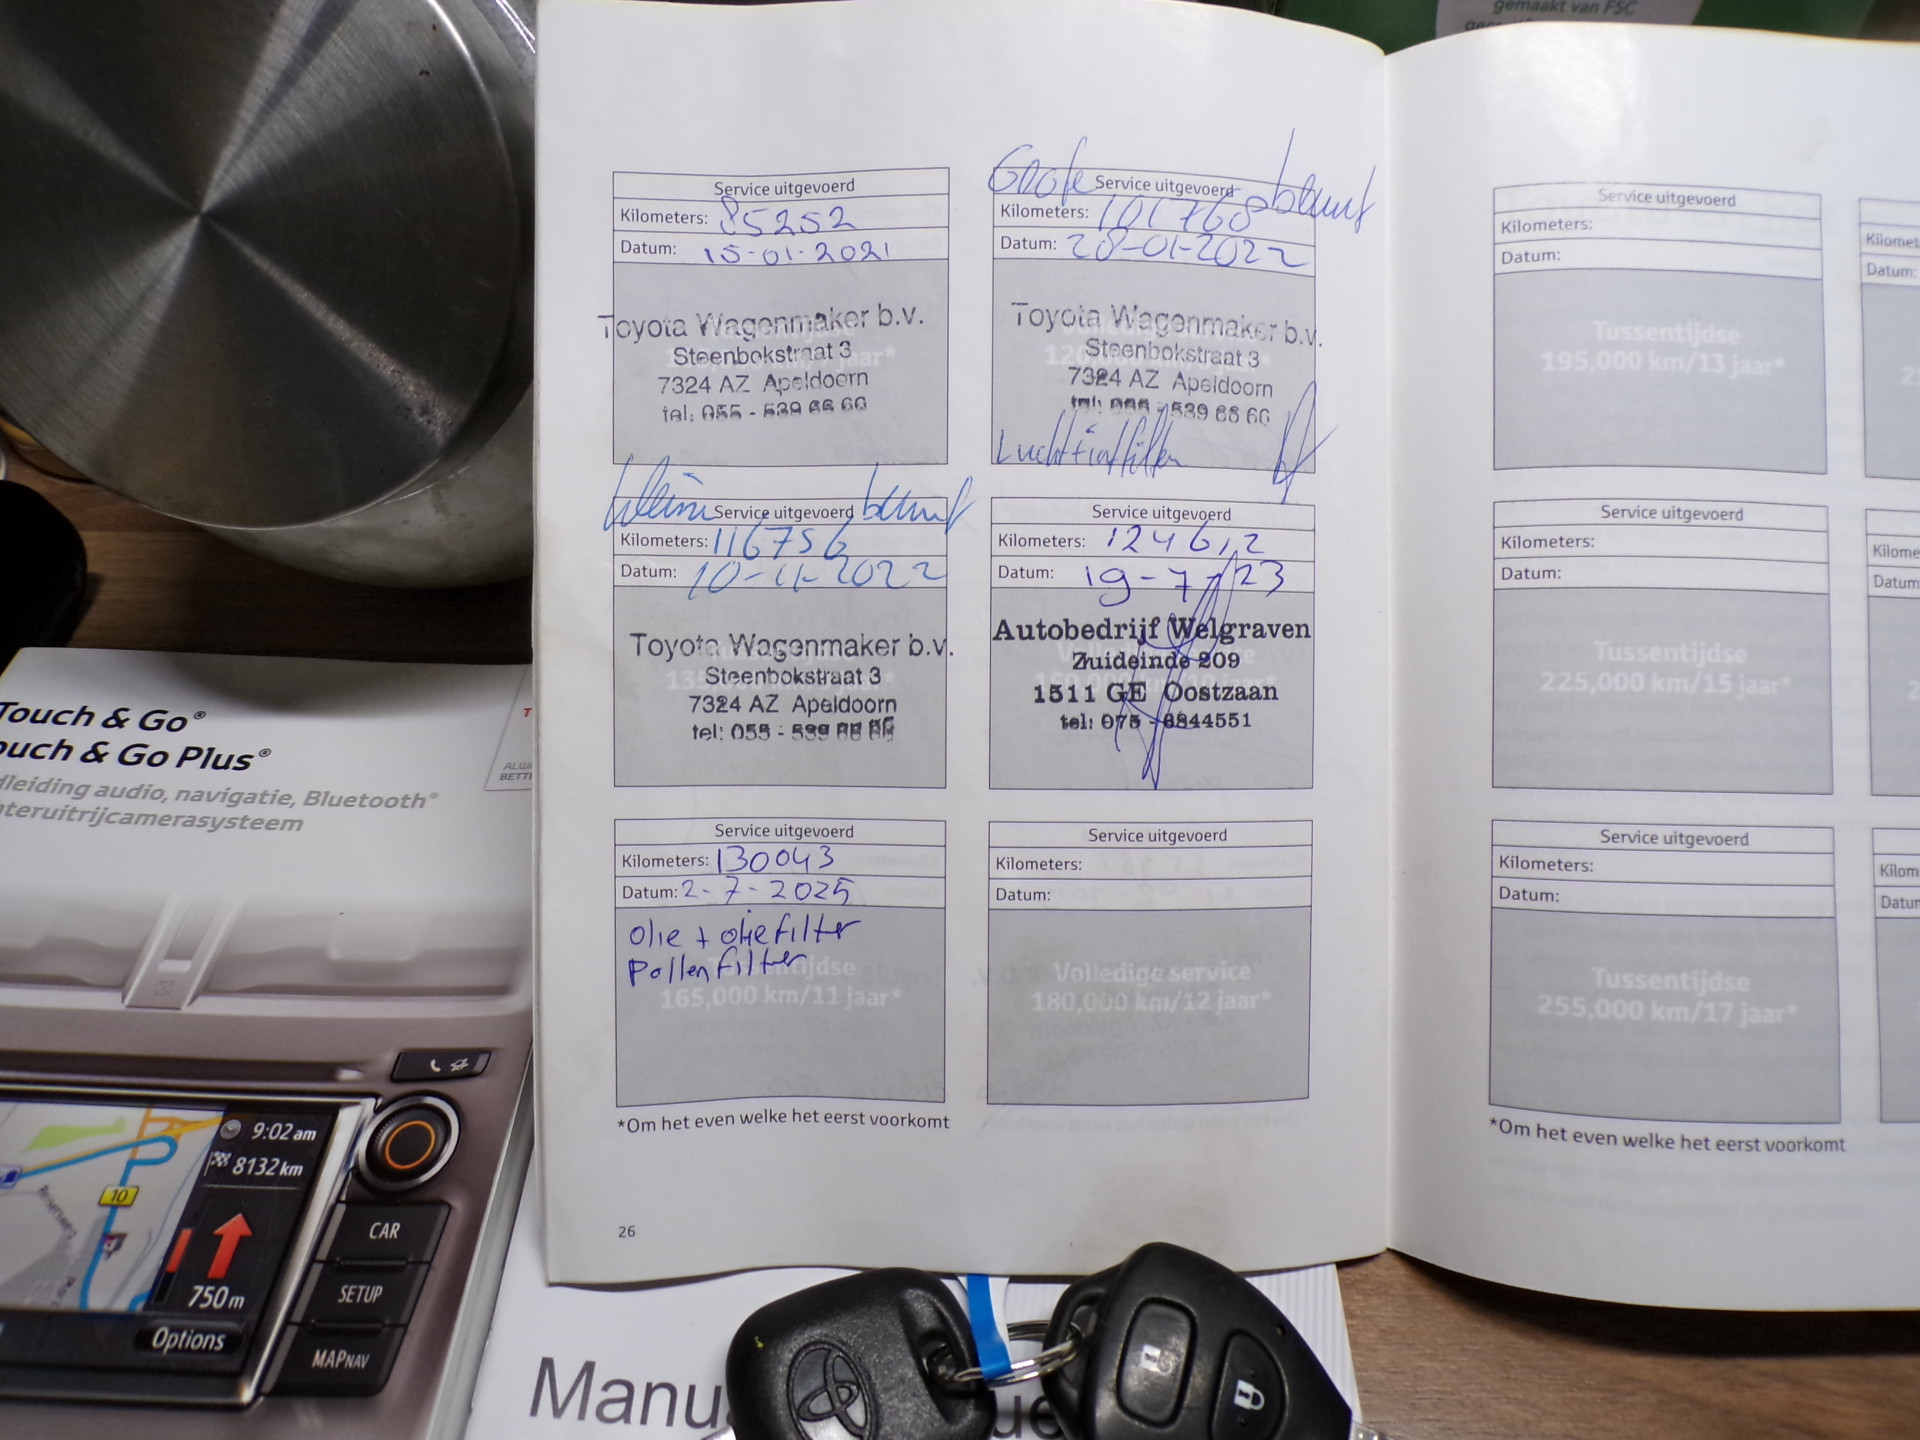 gemaakt van FSC
Service uitgevoerd
Kilometers: 85252
Datum: 15-01-2021
Toyota Wagenmaker b.v.
Steenbokstraat 3
7324 AZ Apeldoorn
tel: 055 - 539 66 60
Grote beurt
Service uitgevoerd
Kilometers: 101768
Datum: 28-01-2022
Toyota Wagenmaker b.v.
Steenbokstraat 3
7324 AZ Apeldoorn
tel: 055 - 539 66 60
Kleine beurt
Service uitgevoerd
Kilometers: 116756
Datum: 10-11-2022
Toyota Wagenmaker b.v.
Steenbokstraat 3
7324 AZ Apeldoorn
tel: 055 - 539
Service uitgevoerd
Kilometers: 124612
Datum: 19-7-23
Autobedrijf Welgraven
Zuideinde 209
1511 GE Oostzaan
tel: 075 - 6844551
Service uitgevoerd
Kilometers: 130043
Datum: 2-7-2025
Olie + oliefilter
Pollenfilter
165,000 km/11 jaar*
Service uitgevoerd
Kilometers:
Datum:
Volledige service
180,000 km/12 jaar*
*Om het even welke het eerst voorkomt
26
Service uitgevoerd
Kilometers:
Datum:
Tussentijdse
195,000 km/13 jaar*
Service uitgevoerd
Kilometers:
Datum:
Tussentijdse
225,000 km/15 jaar*
Service uitgevoerd
Kilometers:
Datum:
Tussentijdse
255,000 km/17 jaar*
*Om het even welke het eerst voorkomt
Kilomet
Datum:
Kilome
Datum
Kilom
Datur
Touch & Go®
ouch & Go Plus®
dleiding audio, navigatie, Bluetooth®
teruitrijcamerasysteem
9:02 am
8132 km
10
750 m
Options
CAR
SETUP
MAPNAV
Manu